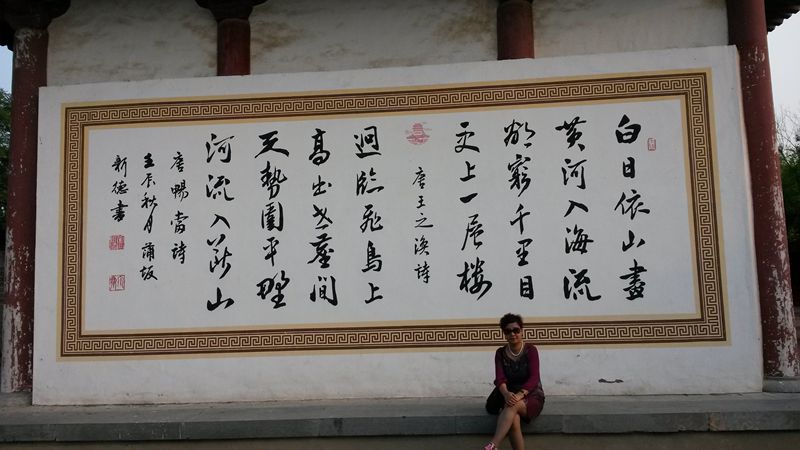 白日依山盡
黄河入海流
欲窮千里目
更上一层楼
唐王之涣詩
迥臨飛鳥上
高出世塵間
天勢圍平野
河流入断山
唐暢當詩
壬辰秋月蒲坂
新德書